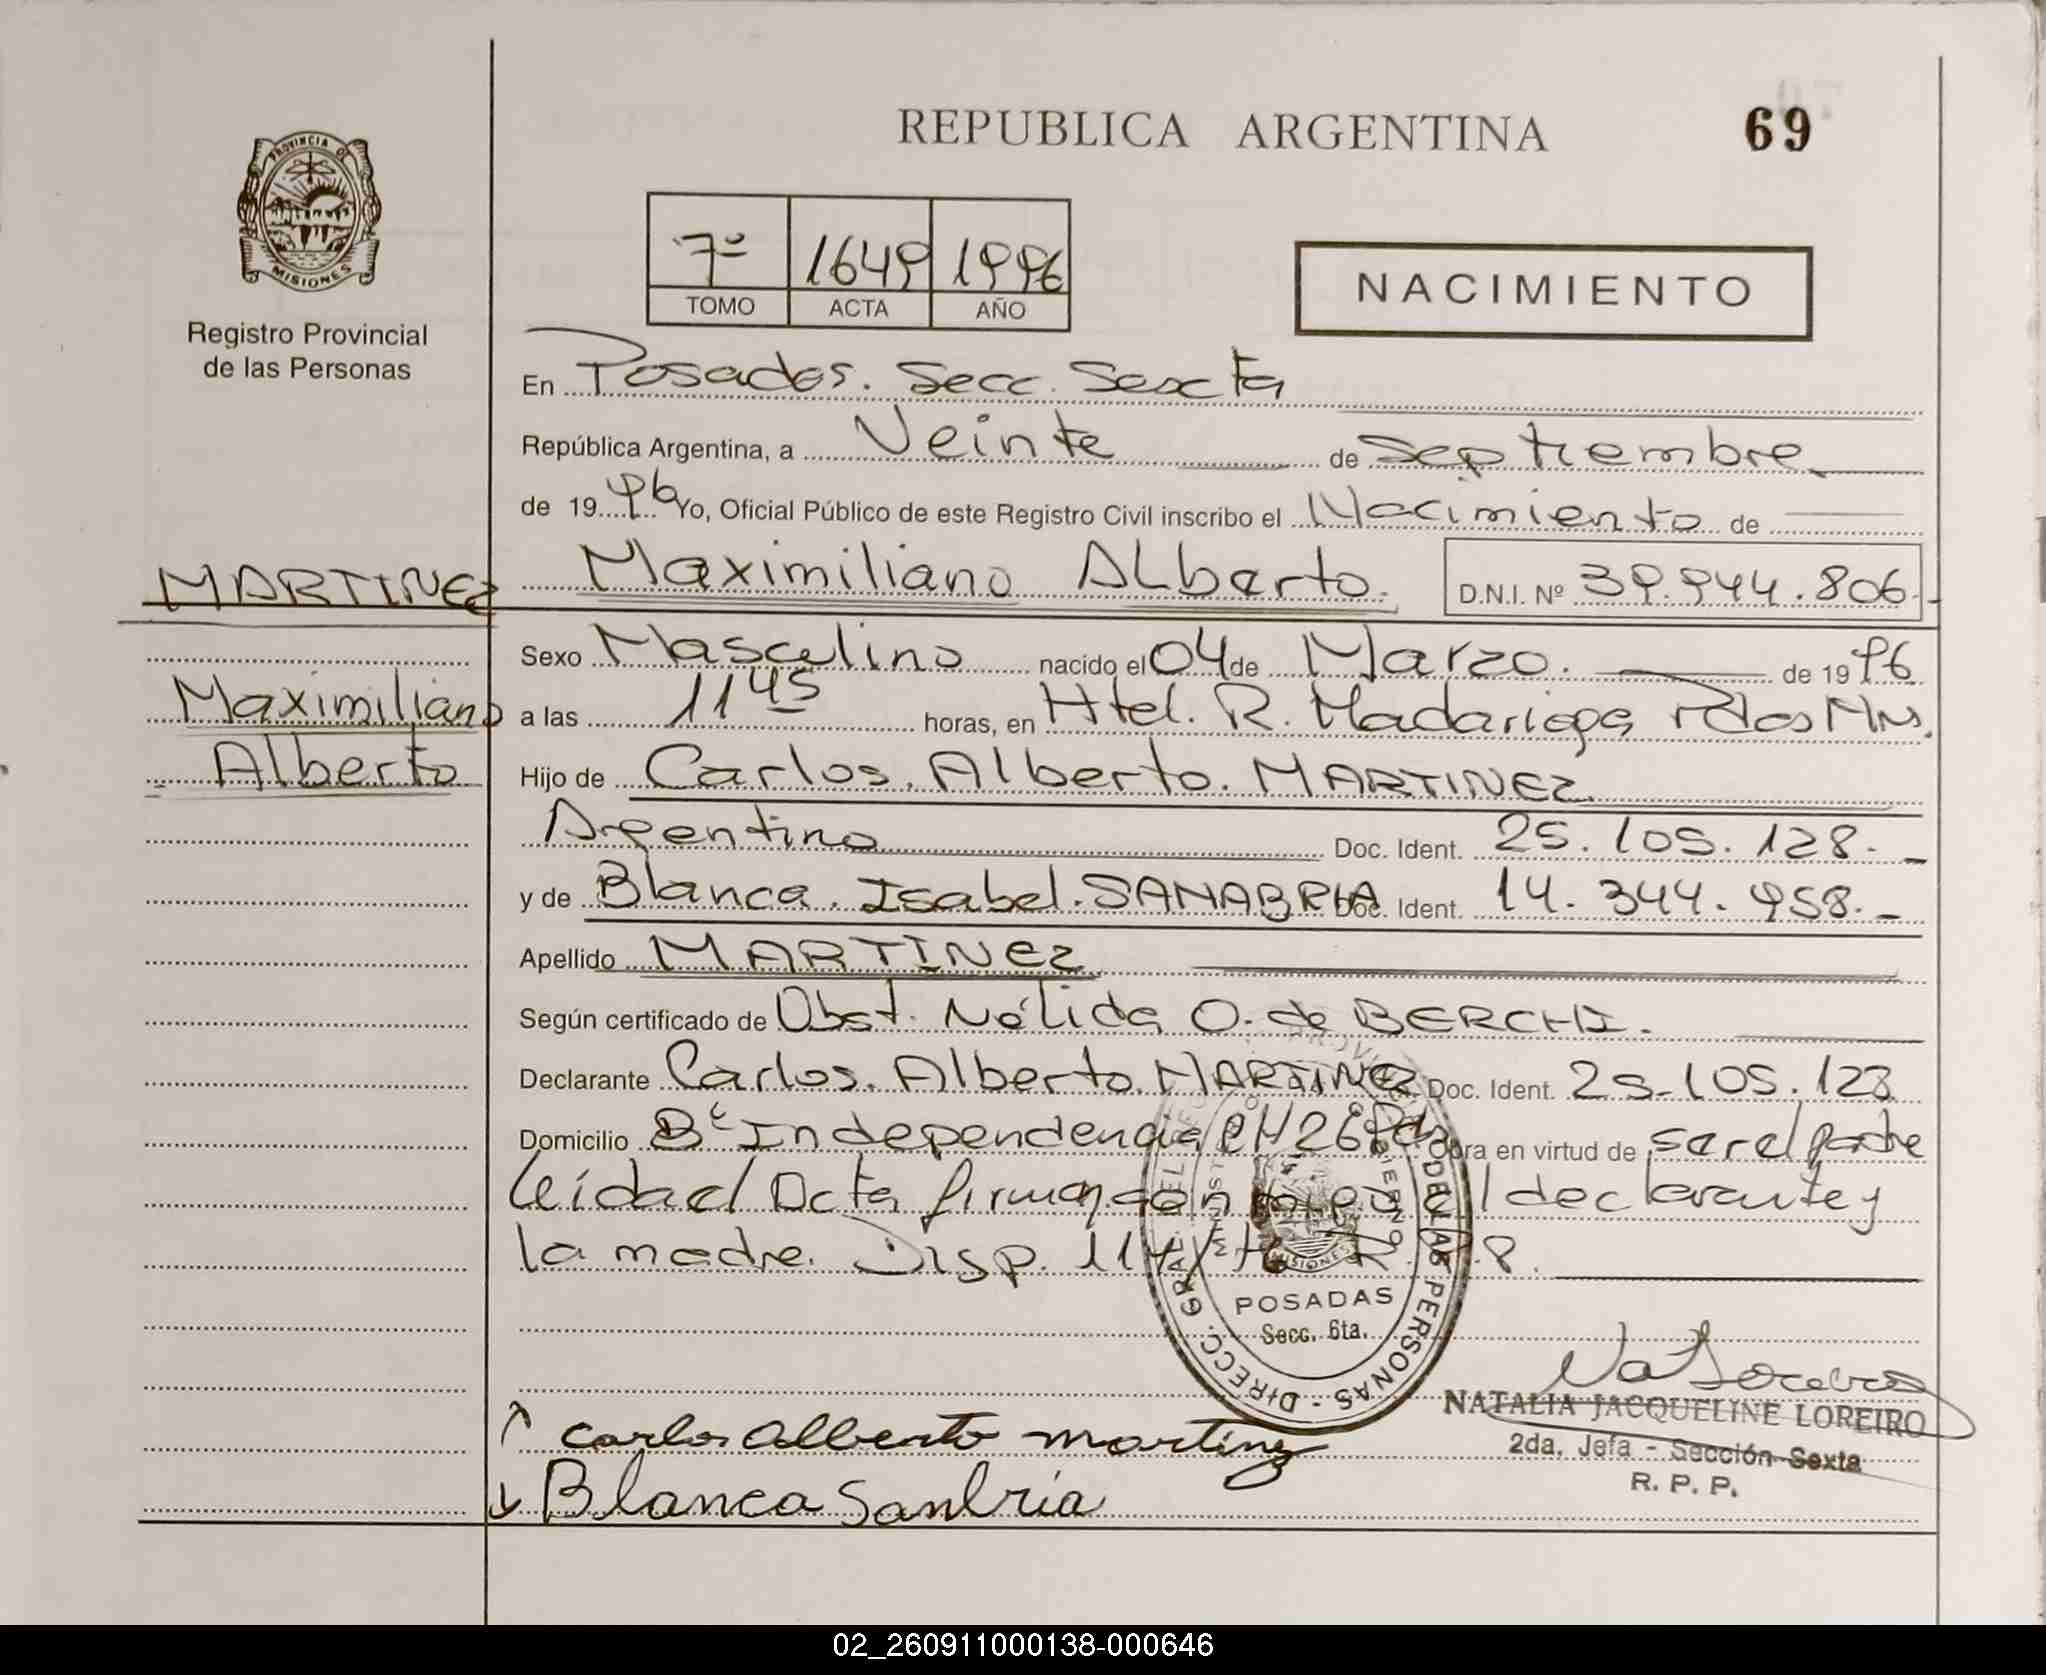 REPUBLICA ARGENTINA
69
PROVINCIA DE
MISIONES
Registro Provincial
de las Personas
7º 1649 1996
TOMO ACTA AÑO
NACIMIENTO
En Posadas. Secc. Sexta
República Argentina, a Veinte de Septiembre
de 1996 Yo, Oficial Público de este Registro Civil inscribo el Nacimiento de
MARTINEZ
Maximiliano Alberto. D.N.I. Nº 39.944.806.
Sexo Masculino nacido el 04 de Marzo. de 1996
Maximiliano
a las 11 45 horas, en Htel. R. Madariaga Pdas Mns.
Alberto
Hijo de Carlos. Alberto. MARTINEZ
Argentino Doc. Ident. 25.105.128.
y de Blanca. Isabel. SANABRIA Doc. Ident. 14.344.958.
Apellido MARTINEZ
Según certificado de Obst. Nélida O. de BERCHI.
Declarante Carlos. Alberto. MARTINEZ Doc. Ident. 25.105.128
Domicilio Bº Independencia CH 26 Pdas Obra en virtud de ser el padre
leida el Acta firman con migo el declarante y
la madre. Disp. 114/
DIRECC. GRAL. DEL DE LAS PERSONAS
MISIONES
POSADAS
Secc. 6ta.
NATALIA JACQUELINE LOREIRO
2da. Jefa - Sección Sexta
R. P. P.
Carlos Alberto Martinez
Blanca Sanbria
02_260911000138-000646